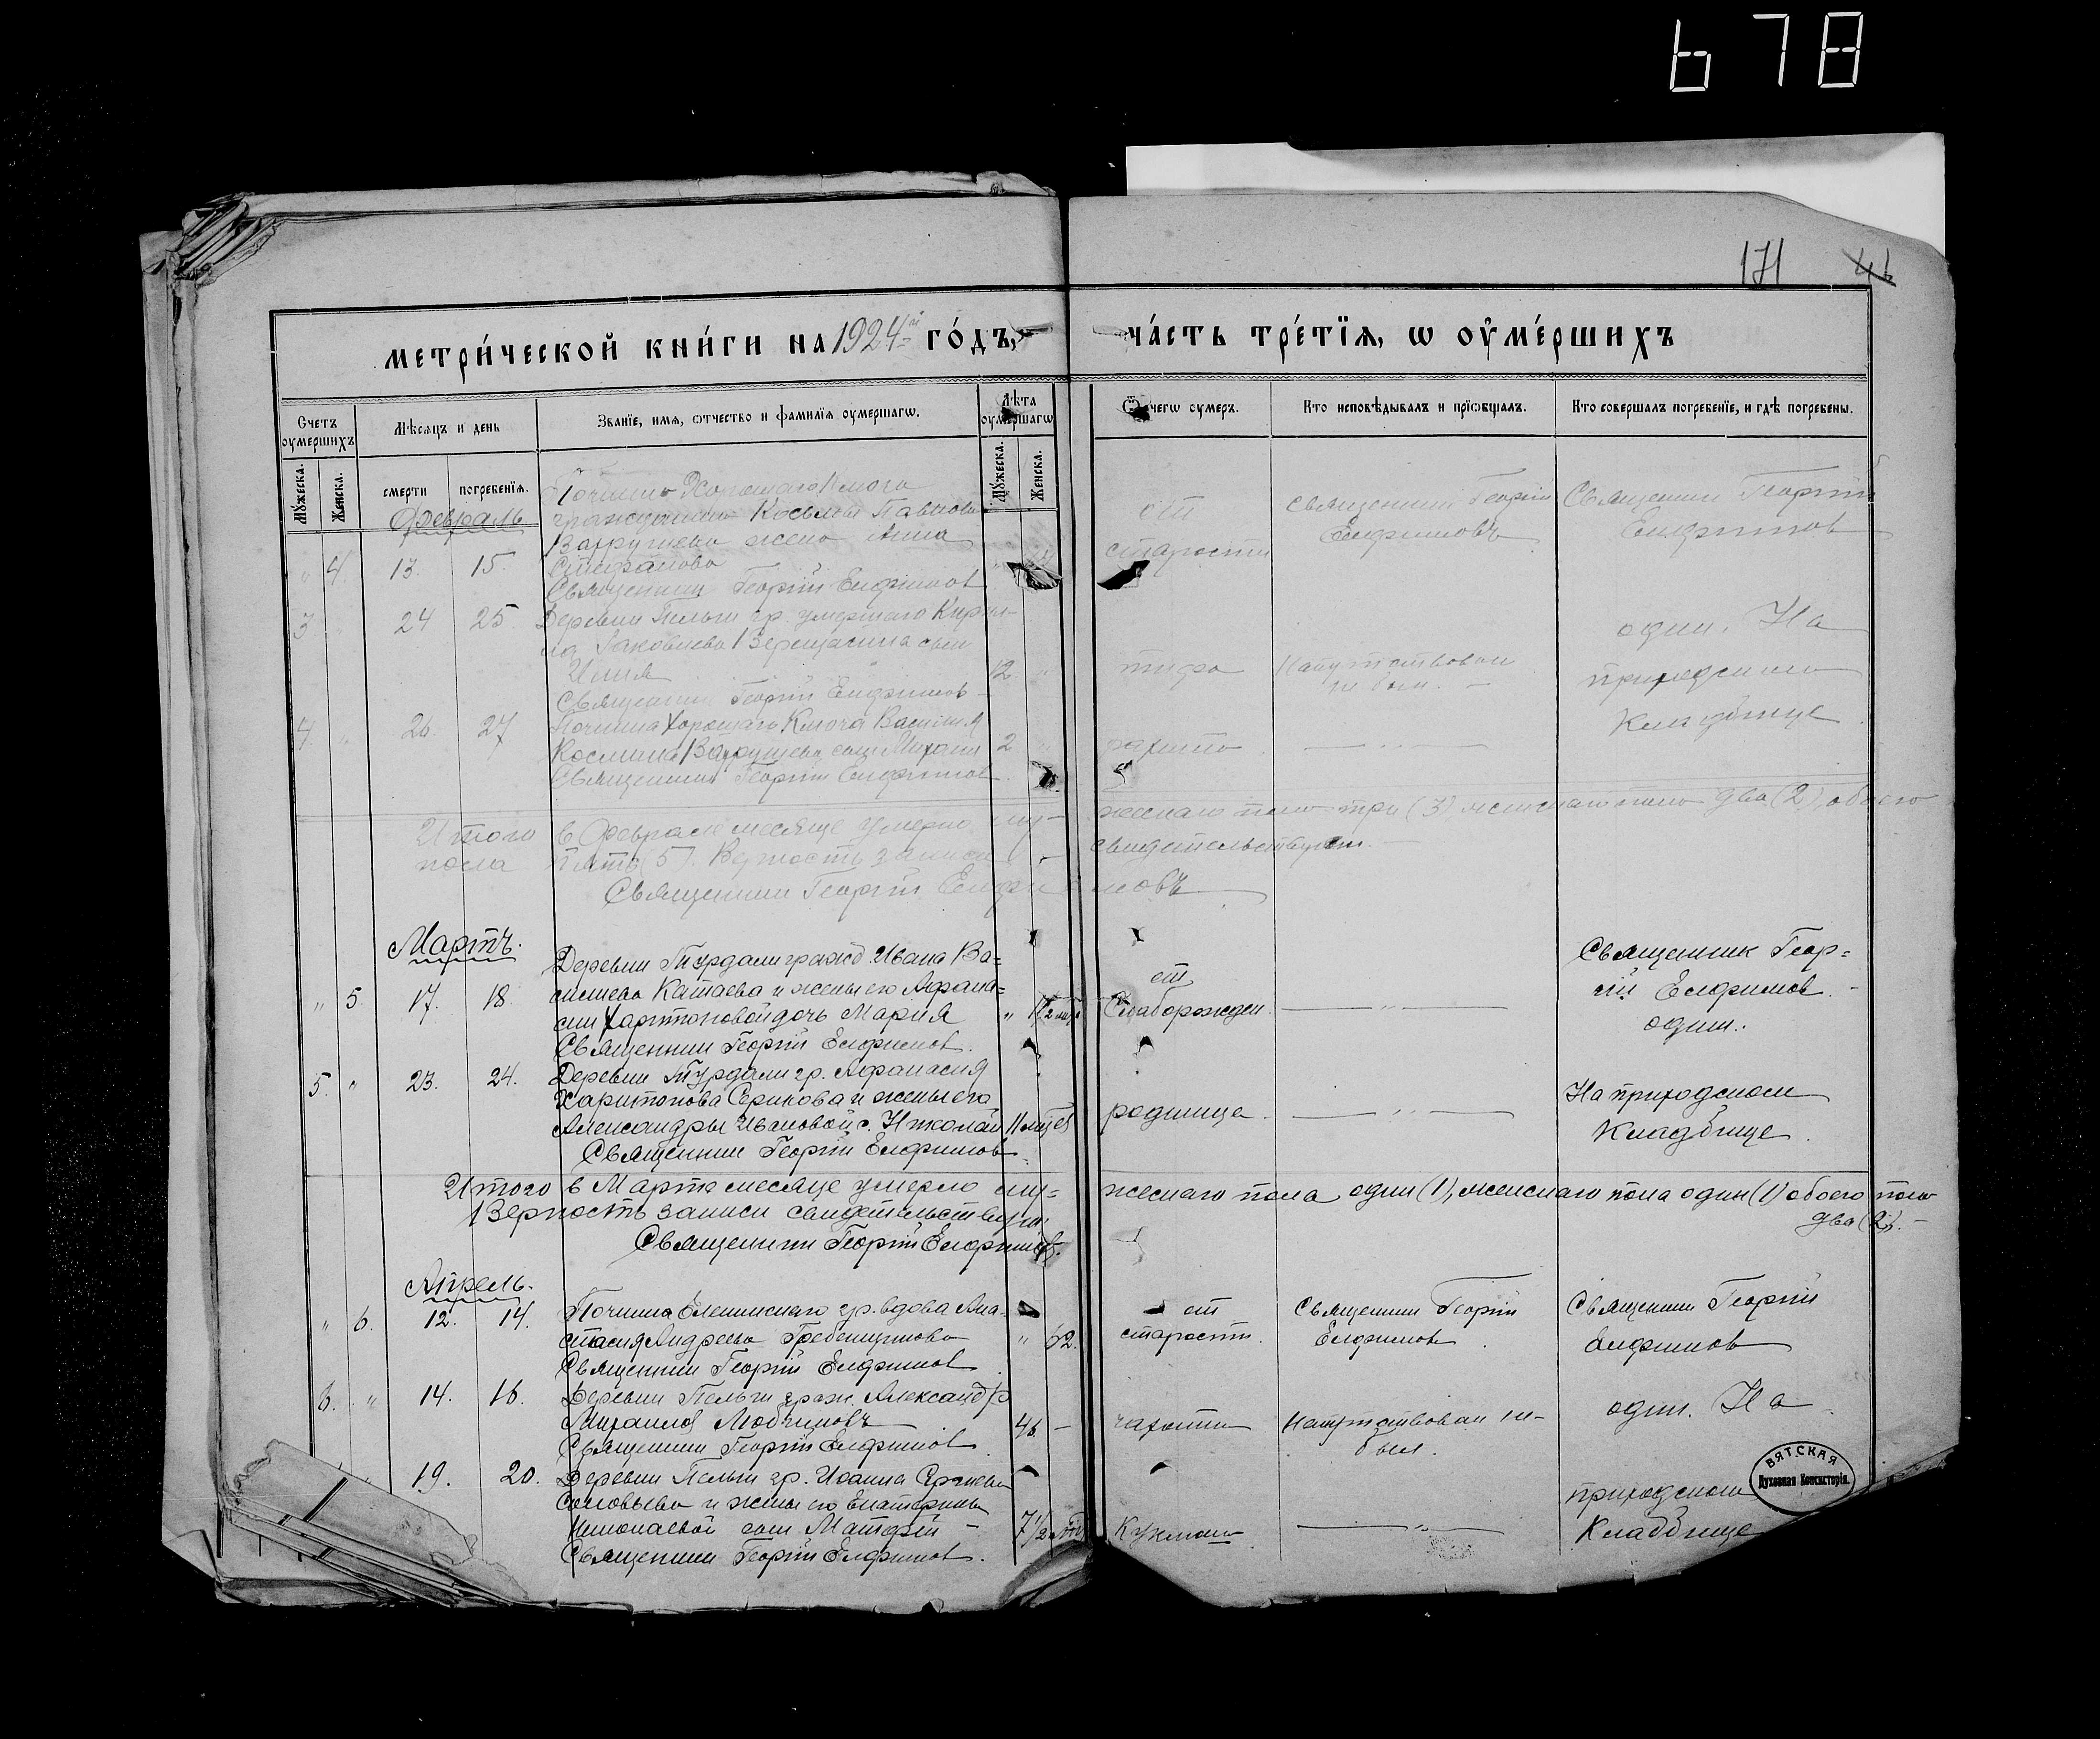 678
171
46
метри́ческой кни́ги на 1924й го́дъ,
ча́сть тре́тїѧ, ѡ оу҆ме́ршихъ
Счетъ оумершихъ
Мѣсяцъ и день
Званїе, имѧ, ѡтчество и фамилїѧ оумершагѡ.
Лѣта оумершагѡ
Ѿ чегѡ оумеръ.
Кто исповѣдывалъ и прїѡбщалъ.
Кто совершалъ погребенїе, и гдѣ погребены.
Мꙋжеска.
Женска.
смерти
погребенїѧ.
Мꙋжеска.
Женска.
Февраль
Починка Хорошаго Ключа
гражданина Косьмы Павлова
Вахрушева жена Анна
" 4 13. 15. Стефанова
Священник Георгий Елефимов
от старости
Священник Георгий Елефимовъ
Священник Георгий Елефимов
3 24 25 Деревни Пельги гр. умершаго Кирил-
ла Яковлева Верещагина сын
Илия 12 "
Священник Георгий Елефимов
тифа
Напутствован не был. -
один. На
приходском
Кладбище
4 " 26. 27 Починка Хорошаго Ключа Василия
Космина Вахрушева сын Михаил 2 "
Священник Георгий Елефимов.
рахита
Итого в Феврале месяце умерло му-
жескаго пола три (3), женскаго пола два (2), обоего
пола пять (5). Верность записи
свидетельствует. -
Священник Георгий Елефимовъ
Мартъ.
Деревни Турдали гражд. Ивана Ва=
" 5 17. 18. сильева Катаева и жены его Афана=
сии Харитоновой дочь Мария " 1/2 мес
Священник Георгий Елефимов.
от
Слаборожден.
Священник Геор=
гий Елефимов. -
один.
5. " 23. 24. Деревни Турдали гр. Афанасия
Харитонова Серикова и жены его
Александры Ивановой с. Николай 11 мес
Священник Георгий Елефимов
родимца
На приходском
Кладбище.
Итого в Марте месяце умерло му=
жескаго пола один (1), женскаго пола один (1) обоего пола
два (2). -
Верность записи свидетельствует.
Священник Георгий Елефимов.
Апрель.
" 6. 12. 14. Починка Еленинскаго гр. вдова Ана-
стасия Андреева Гребенщикова " 62.
Священник Георгий Елефимов
от
старости.
Священник Георгий
Елефимов.
Священник Георгий
Елефимов
6. " 14. 16. Деревни Пельги граж. Александр
Михаилов 46. -
Священник Георгий Елефимов.
чахотки
Напутствован не-
был.
один. На
" 19. 20. Деревни Пельги гр. Иоанна Сергиева
Соловьева и жены его Екатерины
Николаевой сын Матфей - 7 1/2
Священник Георгий Елефимов.
приходском
Кладбище
ВЯТСКАЯ
Духовная Консисторія.